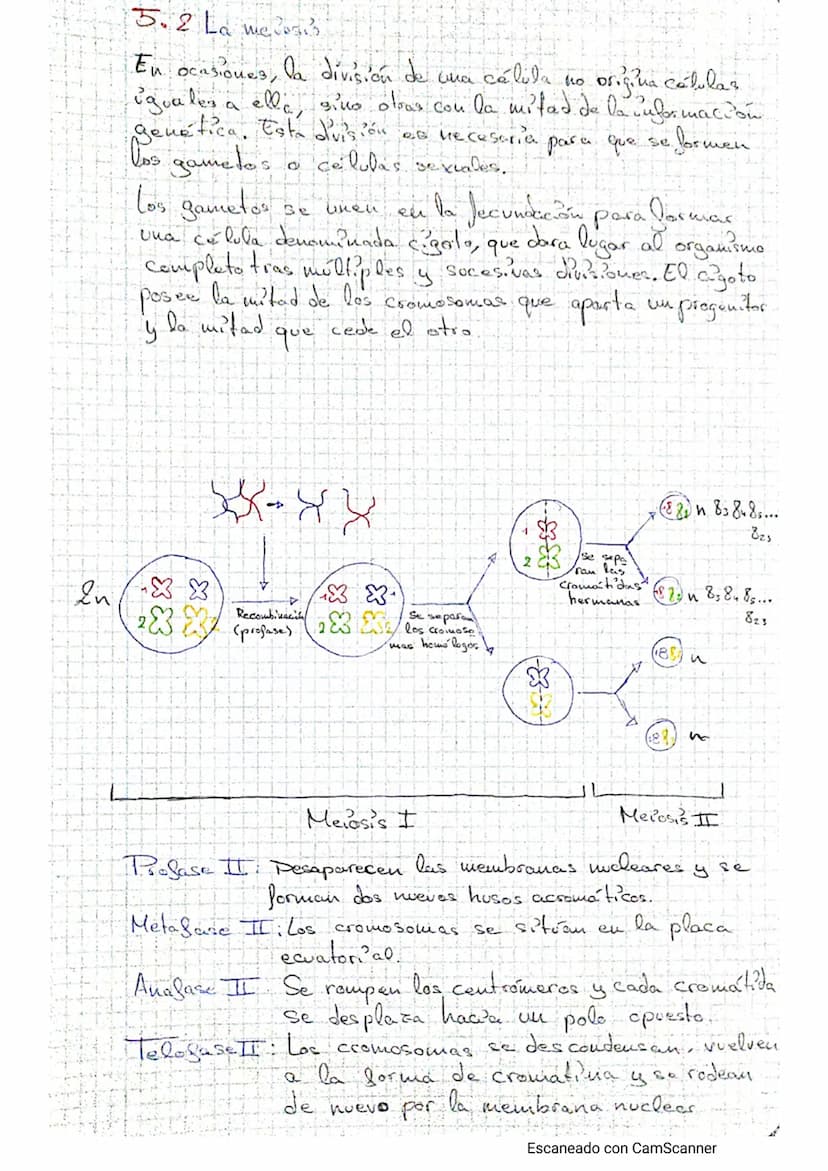 5.2 La meiosis
En ocasiones, la división de una célula no origina células
iguales a ella, sino otras con la mitad de la información
genética. Esta división es necesaria para que se formen
los gametos o células sexuales.
Los gametos se unen en la fecundación para formar
una célula denominada cigoto, que dara lugar al organismo
completo tras múltiples y sucesivas divisiones. El cigoto
posee la mitad de los cromosomas que aporta un progenitor
y la mitad que cede el otro.
2n
1
2
Recombinación
(profase)
1
2
Se separan
los cromoso
mas homólogos
1
2
Se sepa
ran las
cromátidas
hermanas
n 83 84 85...
823
n 83 84 85...
823
n
n
Meiosis I
Meiosis II
Profase II: Desaparecen las membranas nucleares y se
forman dos nuevos husos acromáticos.
Metafase II: Los cromosomas se sitúan en la placa
ecuatorial.
Anafase II: Se rompen los centrómeros y cada cromátida
se desplaza hacia un polo opuesto.
Telofase II: Los cromosomas se descondensan, vuelven
a la forma de cromatina y se rodean
de nuevo por la membrana nuclear
Escaneado con CamScanner